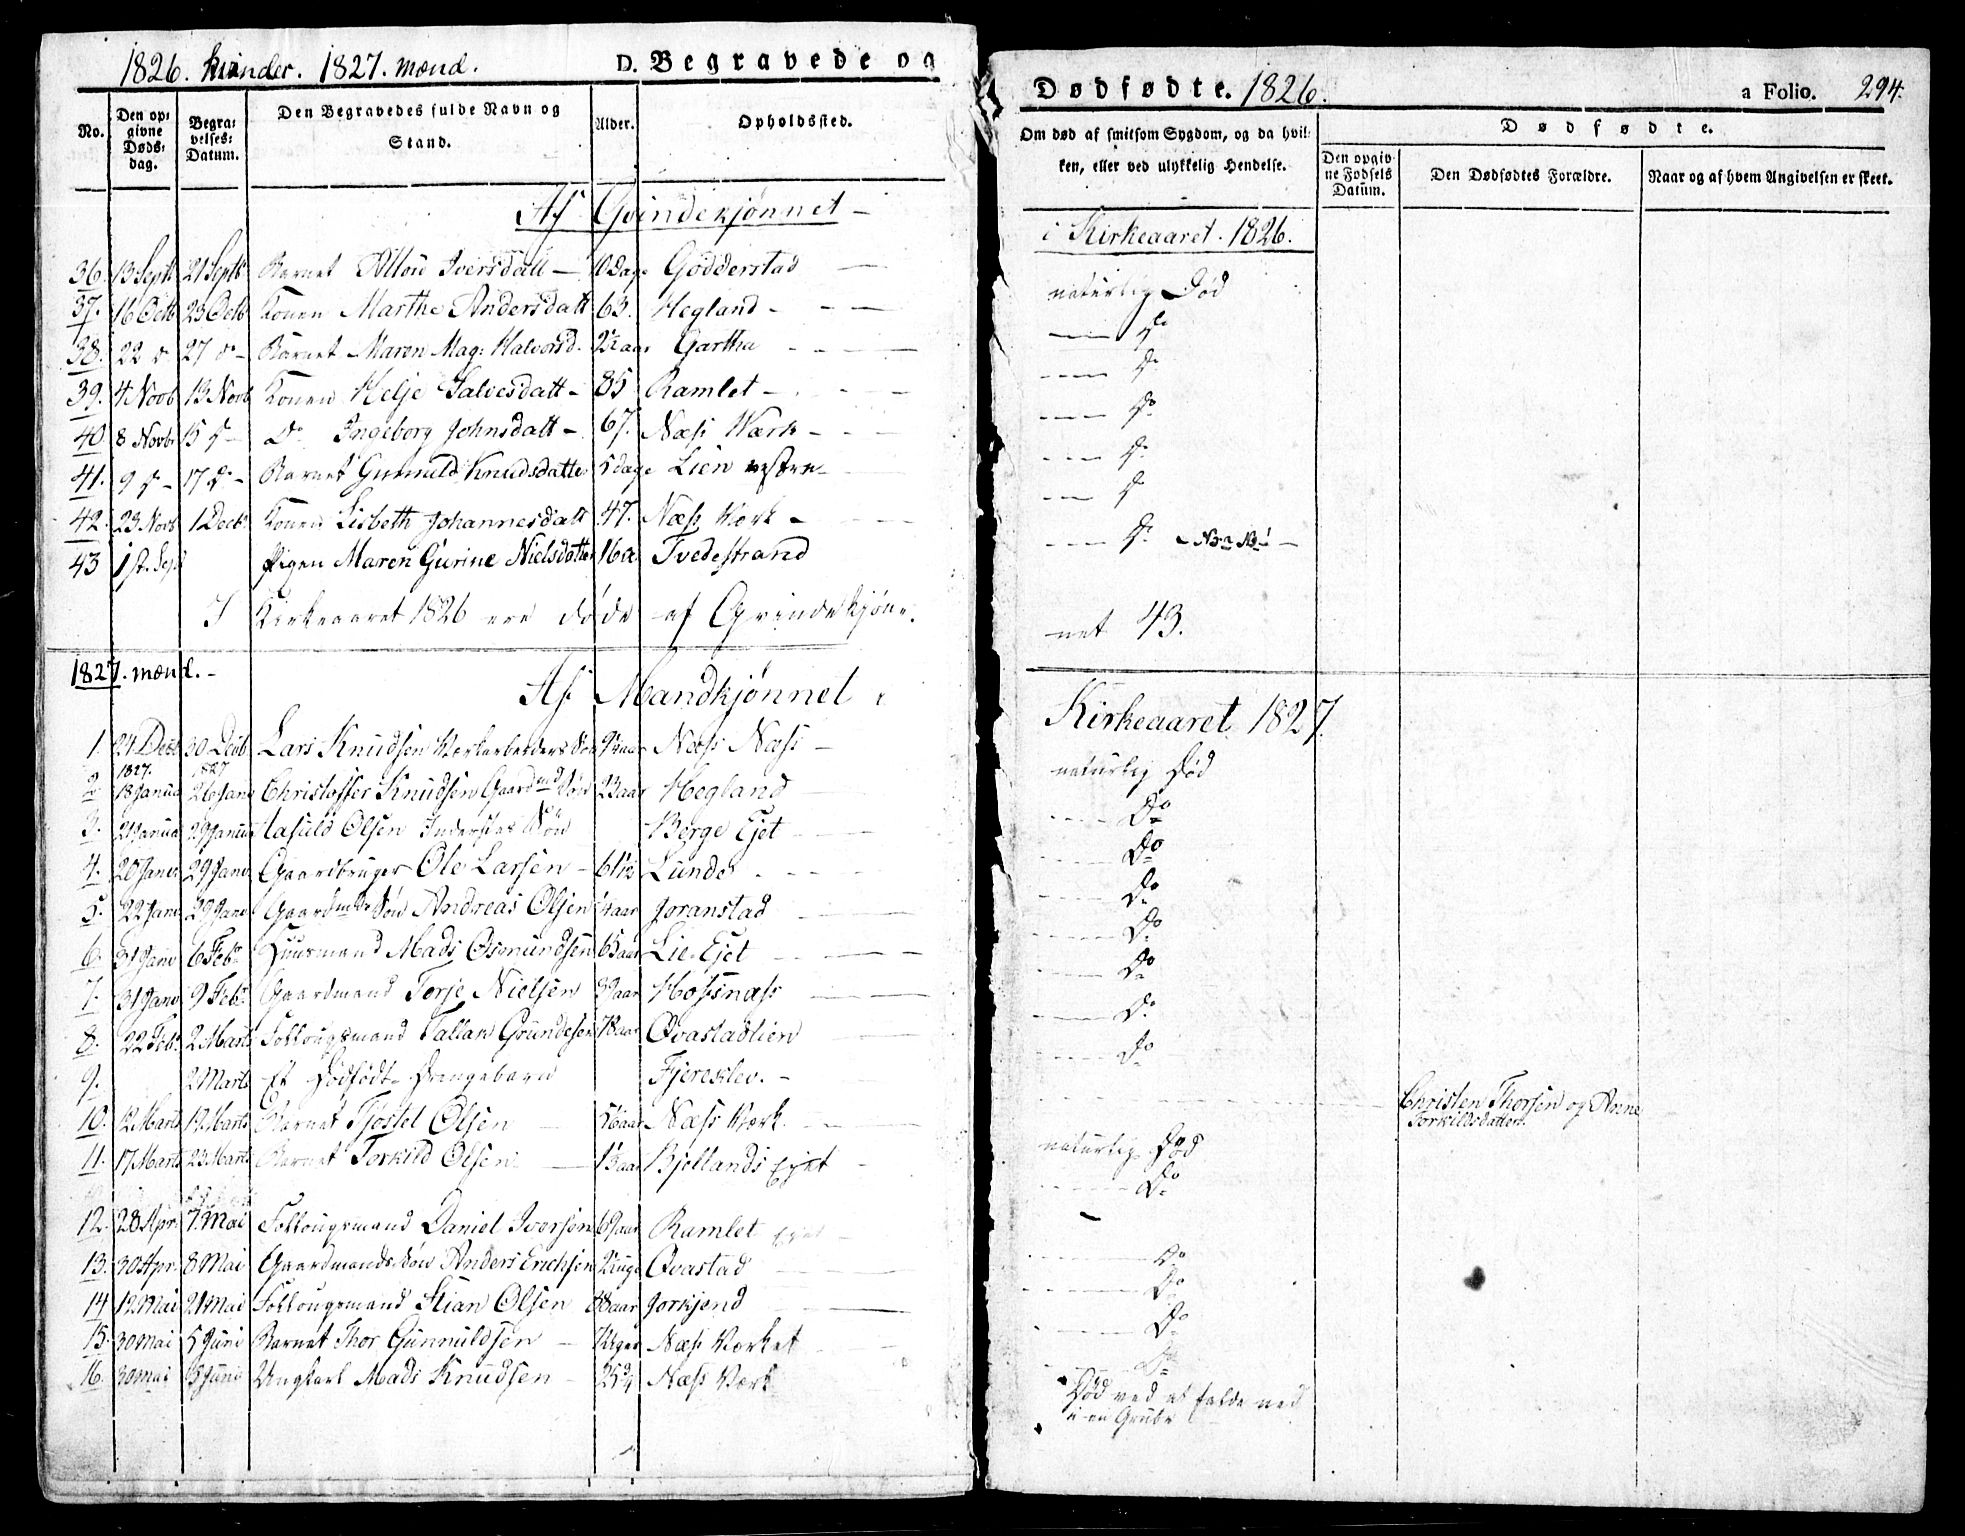 1826. kvinder. 1827. mænd.
D. Begravede og
No.
Den op=
givne
Døds=
dag.
Begra=
velses=
Datum.
Den Begravedes fulde Navn og
Stand.
Alder.
Opholdssted.
Af Qvindekjønnet
36. 13 Septb 21 Septb Barnet Iversdatt — 10 Dage Godderstad
37. 16 Octb 23 Octb Konen Marthe Andersdatt 63. Hegland
38. 22 do 27 do Barnet Maren Mag: Halvorsd. Gartha
39. 4 Novb 13 Novb Konen Helje Salvesdatt 85 Ramlet
40 8 Novb. 15 do Do Ingeborg Johnsdatt 67. Næss Værk
41. 9 do 17 do Barnet Gunnild Knudsdatter 5 dage Lien vestre
42. 23 Novb 1 Decb. Konen Lisbeth Johannesdatt 47. Næss Værk
43 1st. Sept Pigen Maren Gurine Nielsdatter 16 a Tvedestrand
I Kirkeaaret 1826 ere døde af Qvindekjøn=
1827. mænd.
Af Mandkjønnet i
1. 24 Decb 30 Decb Lars Knudsen Værkarbeiders Næss Næss
1827. 1827
2 18 Janua 26 Janu Christoffer Knudsen Gaardmd Søn 23 aar Hegland
3. 21 Janua 29 Janua Olsen Inderstes Søn Berge Ejet
4. 20 Janu 29 Janu Gaardbruger Ole Larsen 61½ Lunde
5. 22 Janu 29 Janu Gaardmds Søn Andreas Olsen Joranstad
6. 31 Janu 6 Feb. Huusmand Mads Osmundsen 65 aar Lie Ejet
7. 31 Janu 9 Feb. Gaardmand Torje Nielsen 39 aar Hossnæss
8. 22 Feb. 2 Marts Follougsmand Tallak Grundesen 78 aar Qvastadlien
9. 2 Marts Et Dødfødt Drengebarn Fjereklev.
10. 12 Marts 19 Marts Barnet Tjostel Olsen Næss Værk
11. 17 Marts 23 Marts Barnet Torkild Olsen Bjellands Ejet
12. 28 Apr. 7. Mai Follougsmand Daniel Iversen 69 aar Ramlet Ejet
13. 30 Apr. 8 Mai Gaardmands Søn Anders Erichsen Qvastad
14 12 Mai 21 Mai Follougsmand Stian Olsen 88 aar Jorkjend
15. 30 mai 5 Juni Barnet Thor Gunnuldsen Næss Værket
16. 30 mai 5 Juni Ungkarl Mads Knudsen 25¾ Næss Værk
Dødfødte. 1826.
a Folio. 294.
Om død af smitsom Sygdom, og da hvil=
ken, eller ved ulykkelig Hendelse.
Dødfødte.
Den opgiv=
ne Fødsels
Datum.
Den Dødfødtes Forældre.
Naar og af hvem Angivelsen er skeet.
i Kirkeaaret 1826.
naturlig Død
do
do
do
do
do
do
net 43.
Kirkeaaret 1827.
naturlig Død
Do
Do
Do
Do
Do
Do
Do
Christen Thorsen og Anne
Torkildsdatter.
naturlig Død
Do
Do
Do
Do
Do
Død ved at falde ned
i en Grube